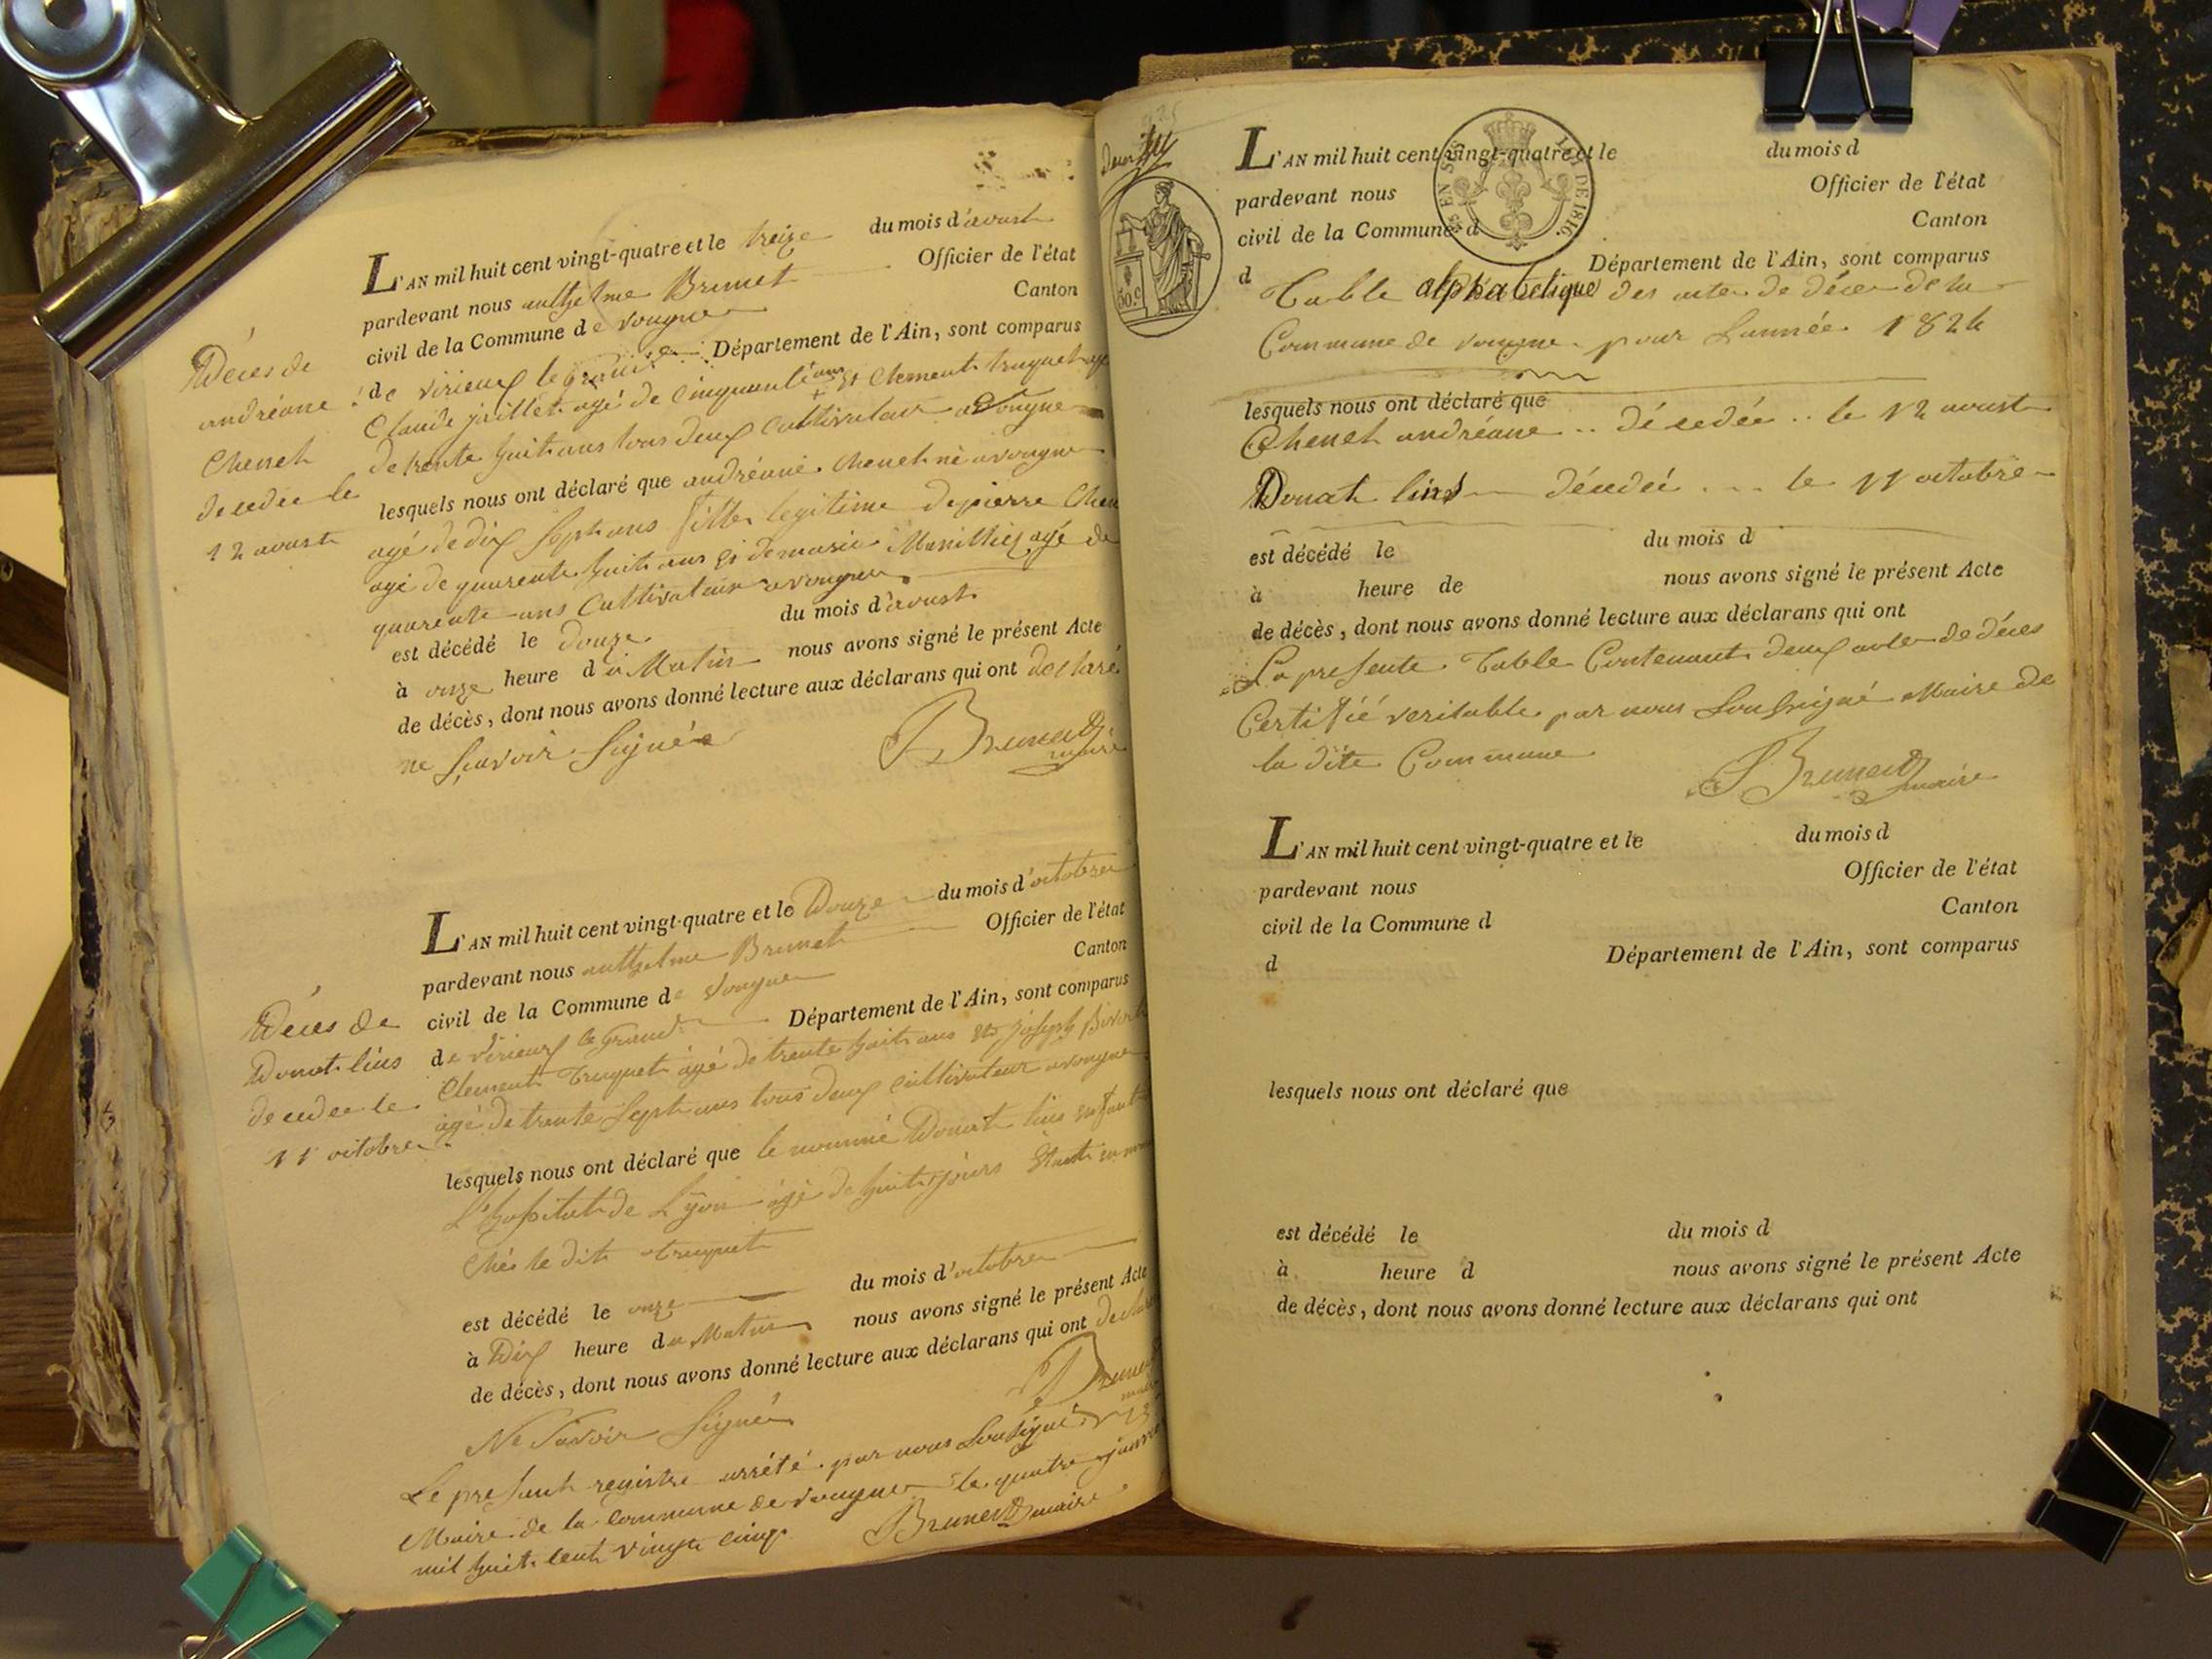 L'AN mil huit cent vingt-quatre et le treize du mois d'avoust
pardevant nous anthelme Brunet Officier de l'état
civil de la Commune de vongne Canton
de virieux le grand Département de l'Ain, sont comparus
Claude juillet agé de Cinquante ans et Clement truquet agé
de trente huit ans tous deux Cultivateur a vongne
lesquels nous ont déclaré que andréane Chenet né a vongne
agé de dix sept ans fille legitime de pierre Chenet
agé de quarente huit ans et de marie agé de
quarente ans Cultivateur a vongne
est décédé le douze du mois d'avoust
à onze heure du Matin nous avons signé le présent Acte
de décès, dont nous avons donné lecture aux déclarans qui ont declaré
ne sçavoir signée
Brunet
maire
Décès de
andréane
Chenet
decedée le
12 avoust
L'AN mil huit cent vingt-quatre et le Douze du mois d'octobre
pardevant nous anthelme Brunet Officier de l'état
civil de la Commune de vongne Canton
de virieux le grand Département de l'Ain, sont comparus
Clement truquet agé de trente huit ans et joseph
agé de trente sept ans tous deux cultivateur a vongne
lesquels nous ont déclaré que le nommé Donat lius enfant
L'hopital de Lyon agé de huit jours Etant en
ches le dit truquet
est décédé le onze du mois d'octobre
à Dix heure du Matin nous avons signé le présent Acte
de décès, dont nous avons donné lecture aux déclarans qui ont
Ne savoir signée
Brunet
Décès de
Donat lius
decedee le
11 octobre
Le present registre arrété par nous sousigné
Maire de la commune de vongne le quatre janvier
mil huit cent vingt cinq Brunet maire
L'AN mil huit cent vingt-quatre et le du mois d
pardevant nous Officier de l'état
civil de la Commune d Canton
d Département de l'Ain, sont comparus
EN SUS LOI DE 1816.
50.c
Table alphabetique des actes de décès de la
Commune de vongne pour Lannée 1824
lesquels nous ont déclaré que
Chenet andréane .. décedée .. le 12 avoust
Donat lius décedé ... le 11 octobre
est décédé le du mois d
à heure de nous avons signé le présent Acte
de décès, dont nous avons donné lecture aux déclarans qui ont
La presente Table Contenant deux actes de décès
Certifié veritable par nous Sousigné Maire de
la dite Commune
Brunet
maire
L'AN mil huit cent vingt-quatre et le du mois d
pardevant nous Officier de l'état
civil de la Commune d Canton
d Département de l'Ain, sont comparus
lesquels nous ont déclaré que
est décédé le du mois d
à heure d nous avons signé le présent Acte
de décès, dont nous avons donné lecture aux déclarans qui ont